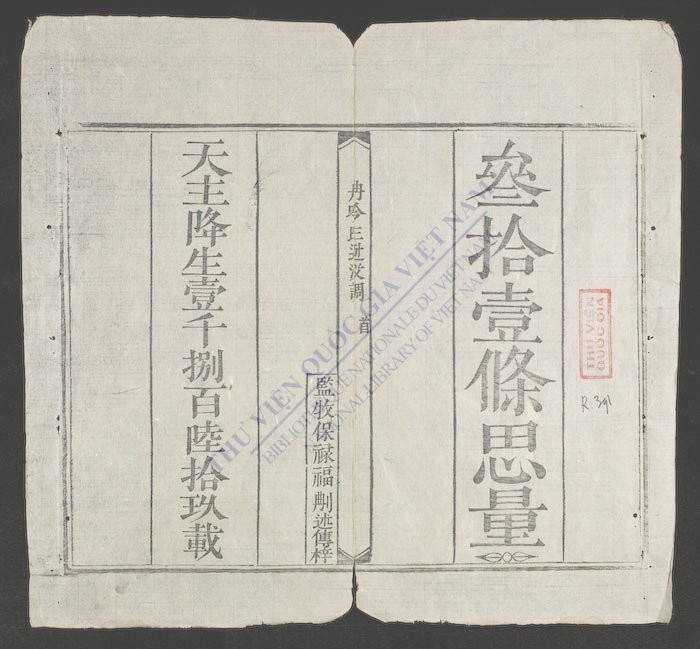 叄拾壹條思量
丹吟𠀧迻𠬠調 首
天主降生壹千捌百陸拾玖載
監牧保祿福刪述傳梓
THƯ VIỆN QUỐC GIA VIỆT NAM
BIBLIOTHÈQUE NATIONALE DU VIETNAM
NATIONAL LIBRARY OF VIETNAM
THƯ VIỆN
QUỐC GIA
R.391